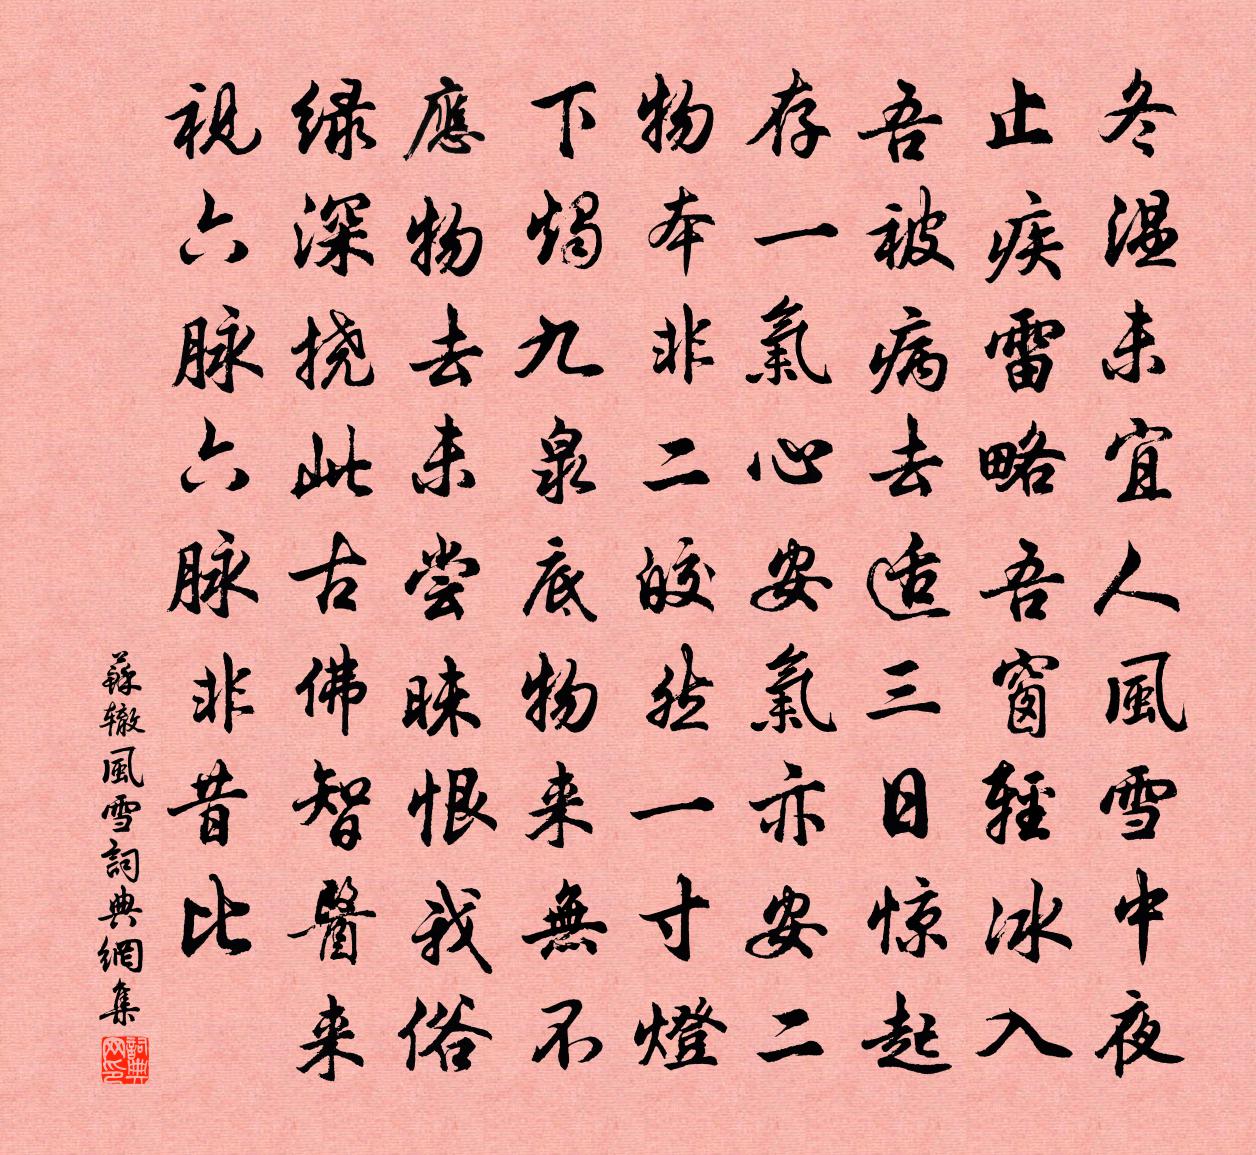 冬温未宜人風雪中夜
止疾雷略吾窗輕冰入
吾被病去适三日惊起
存一氣心安氣亦安二
物本非二皎然一寸燈
下燭九泉底物来無不
應物去未尝昧恨我俗
緑深挠此古佛智醫来
視六脉六脉非昔比
蘇辙風雪詞典網集
詞典网印